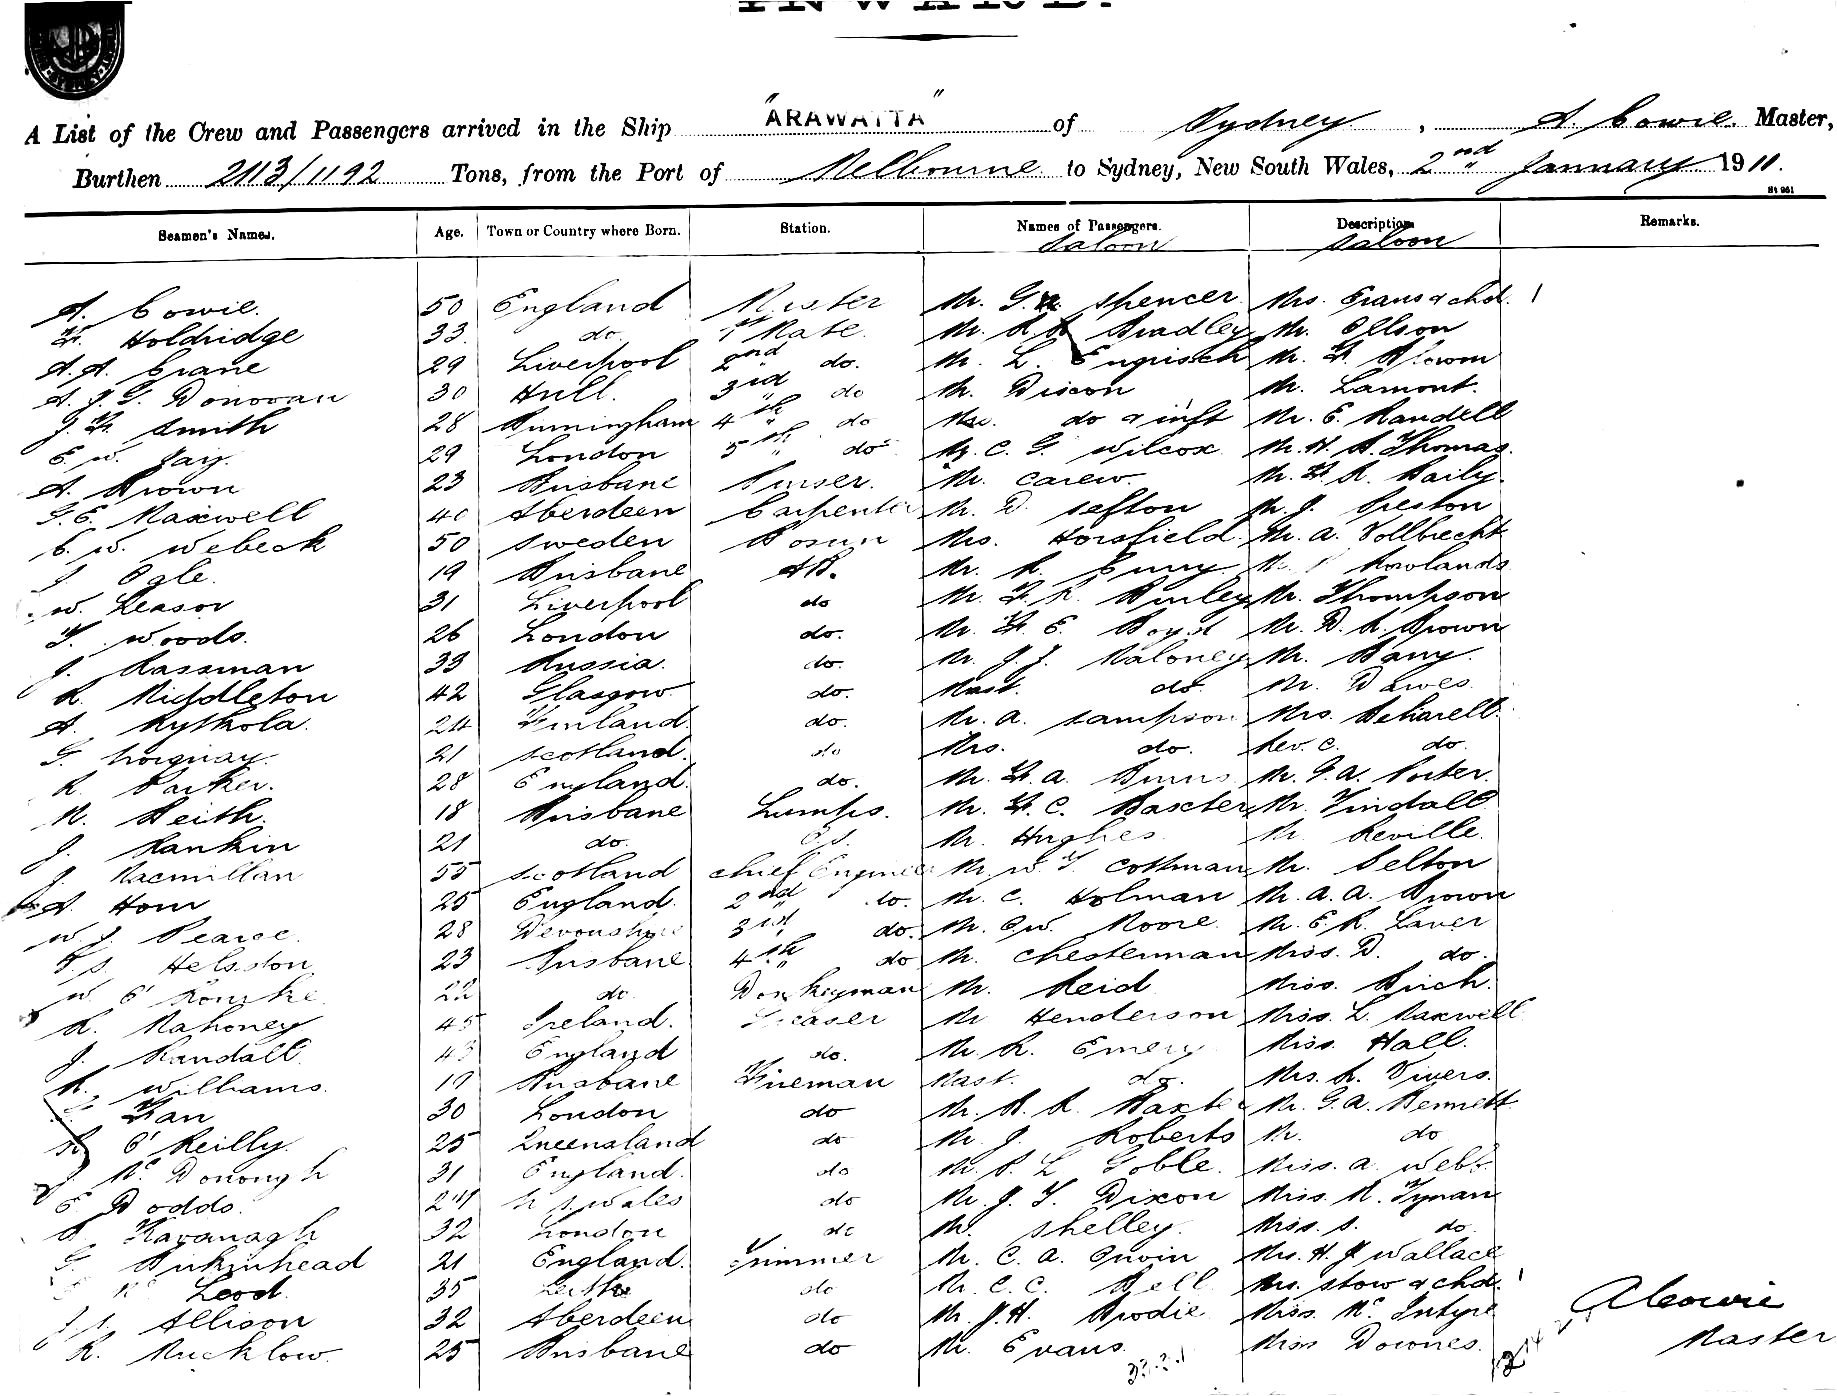 INWARD.
A List of the Crew and Passengers arrived in the Ship "ARAWATTA" of Sydney, A. Cowie. Master,
Burthen 2113/1192 Tons, from the Port of Melbourne to Sydney, New South Wales, 2nd January 1911.
Seamen's Names. Age. Town or Country where Born. Station. Names of Passengers. Description Remarks.
Saloon Saloon
A. Cowie. 50 England Master Mr. G. Spencer Mrs. Evans & chd. 1
H. Holdridge 33 do. 1st Mate. Mr. Bradley Mr. Ellson
A. A. Crane 29 Liverpool 2nd do. Mr. L. Engrisch Mr. F.
A. J. G. Donovan 30 Hull. 3rd do Mr. Dixon Mr. Lamont.
J. H. Smith 28 Birmingham 4th do Mrs. do & inft Mr. E. Randell
E. W. Jay. 29 London 5th do Mr. C. G. Wilcox Mr. H. B. Thomas.
A. Brown 23 Brisbane Purser. Mr. Carew. Mr. F. R. Baily.
G. E. Maxwell 40 Aberdeen Carpenter Mr. D. Sefton Mr. J. Preston
C. W. Webeck 50 Sweden Bosun Mrs. Horsfield. Mr. A. Vollbrecht
J. Ogle. 19 Brisbane AB. Mr. R. Curry Rowlands
W. Leason 31 Liverpool do Mr. F. R. Burley Mr. Thompson
T. Woods. 26 London do. Mr. F. E. Boyd Mr. D. R. Brown
J. Kassman 33 Russia. do. Mr. J. J. Maloney Mr. Barry.
R. Middleton 42 Glasgow do. Mast. do. Mr. Dawes
A. Kythola. 24 Finland. do. Mr. A. Sampson Mrs. Scharell.
G. 21 Scotland. do Mrs. do. Rev. C. do.
R. Parker. 28 England. do. Mr. F. A. Burns Mr. G. A. Porter.
N. Keith. 18 Brisbane Lamps. Mr. F. C. Baxter Mr. Tindall
J. Rankin 21 do. O.S. Mr. Hughes Mr. Reville.
J. Macmillan 55 Scotland Chief Engineer Mr. W. T. Cothman Mr. Selton
A. Horn 25 England. 2nd do. Mr. C. Holman Mr. A. A. Brown
W. J. Pearce. 28 Devonshire 3rd do. Mr. O. W. Moore. Mr. E. R. Laver
Helsdon 23 Brisbane 4th do Mr. Chesterman Miss. D. do.
W O'Rourke. 22 do. Donkeyman Mr. Reid Miss. Birch.
R. Mahoney 45 Ireland. Greaser Mr Henderson Miss. L. Maxwell
J. Randall 43 England do. Mr. R. Emery Miss. Hall.
R. Williams. 19 Brisbane Fireman Mast. do. Mrs. R. Vivers.
Fan 30 London do Mr. R. R. Baxter Mr. G. A. Bennett
O'Reilly. 25 Queensland do Mr. J. Roberts Mr. do
J. McDonough 31 England. do Mr. P. L. Goble. Miss. A. Webb.
E Dodds. 24 N. S. Wales do Mr. J. T. Dixon Miss. M. Tynan
Kavanagh 32 London do Mr. Shelley. Miss. S. do
G. Birkinhead 21 England. Trimmer Mr. C. A. Irwin Mrs. H. J Wallace
Leod. 35 Leith do Mr. C. C. Bell Mrs. Stow & chd. 1
Allison 32 Aberdeen do Mr. J. H. Brodie Miss. McIntyre
R. Mucklow. 25 Brisbane do Mr. Evans. Miss Downes.
A Cowie
Master